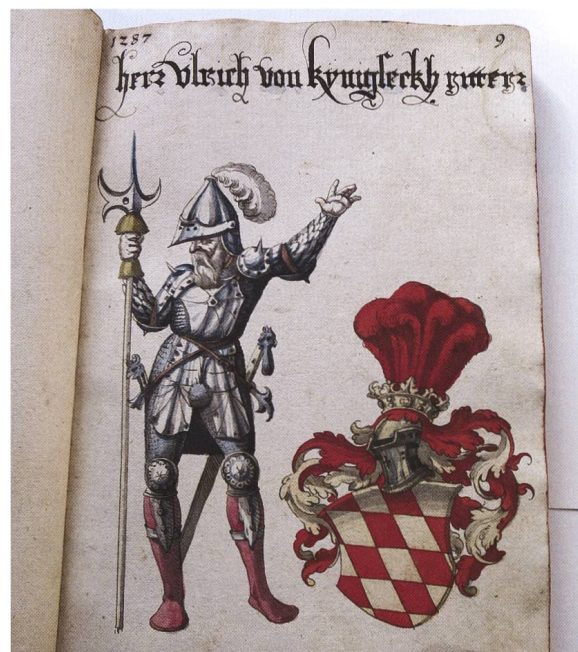 1287 9
herr Ulrich von Kynigseckh ritterr